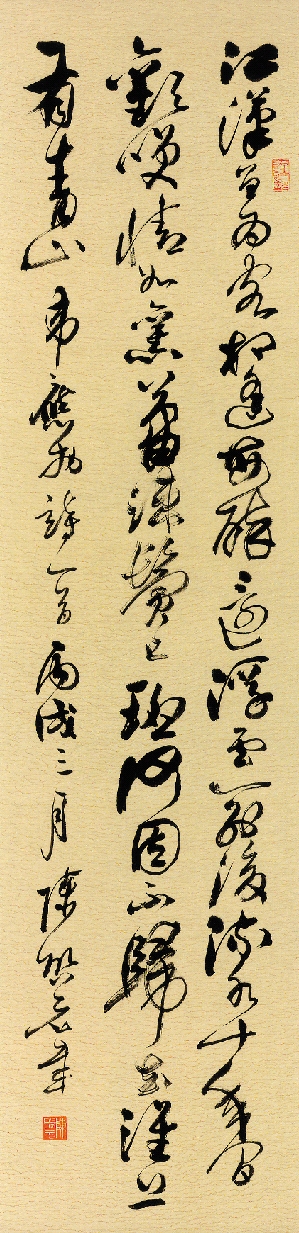 江漢曾為客相逢每醉還浮雲一別後流水十年間
歡笑情如舊蕭疎鬢已斑何因不歸去淮上
有青山韋應物詩一首丙戌三月陳